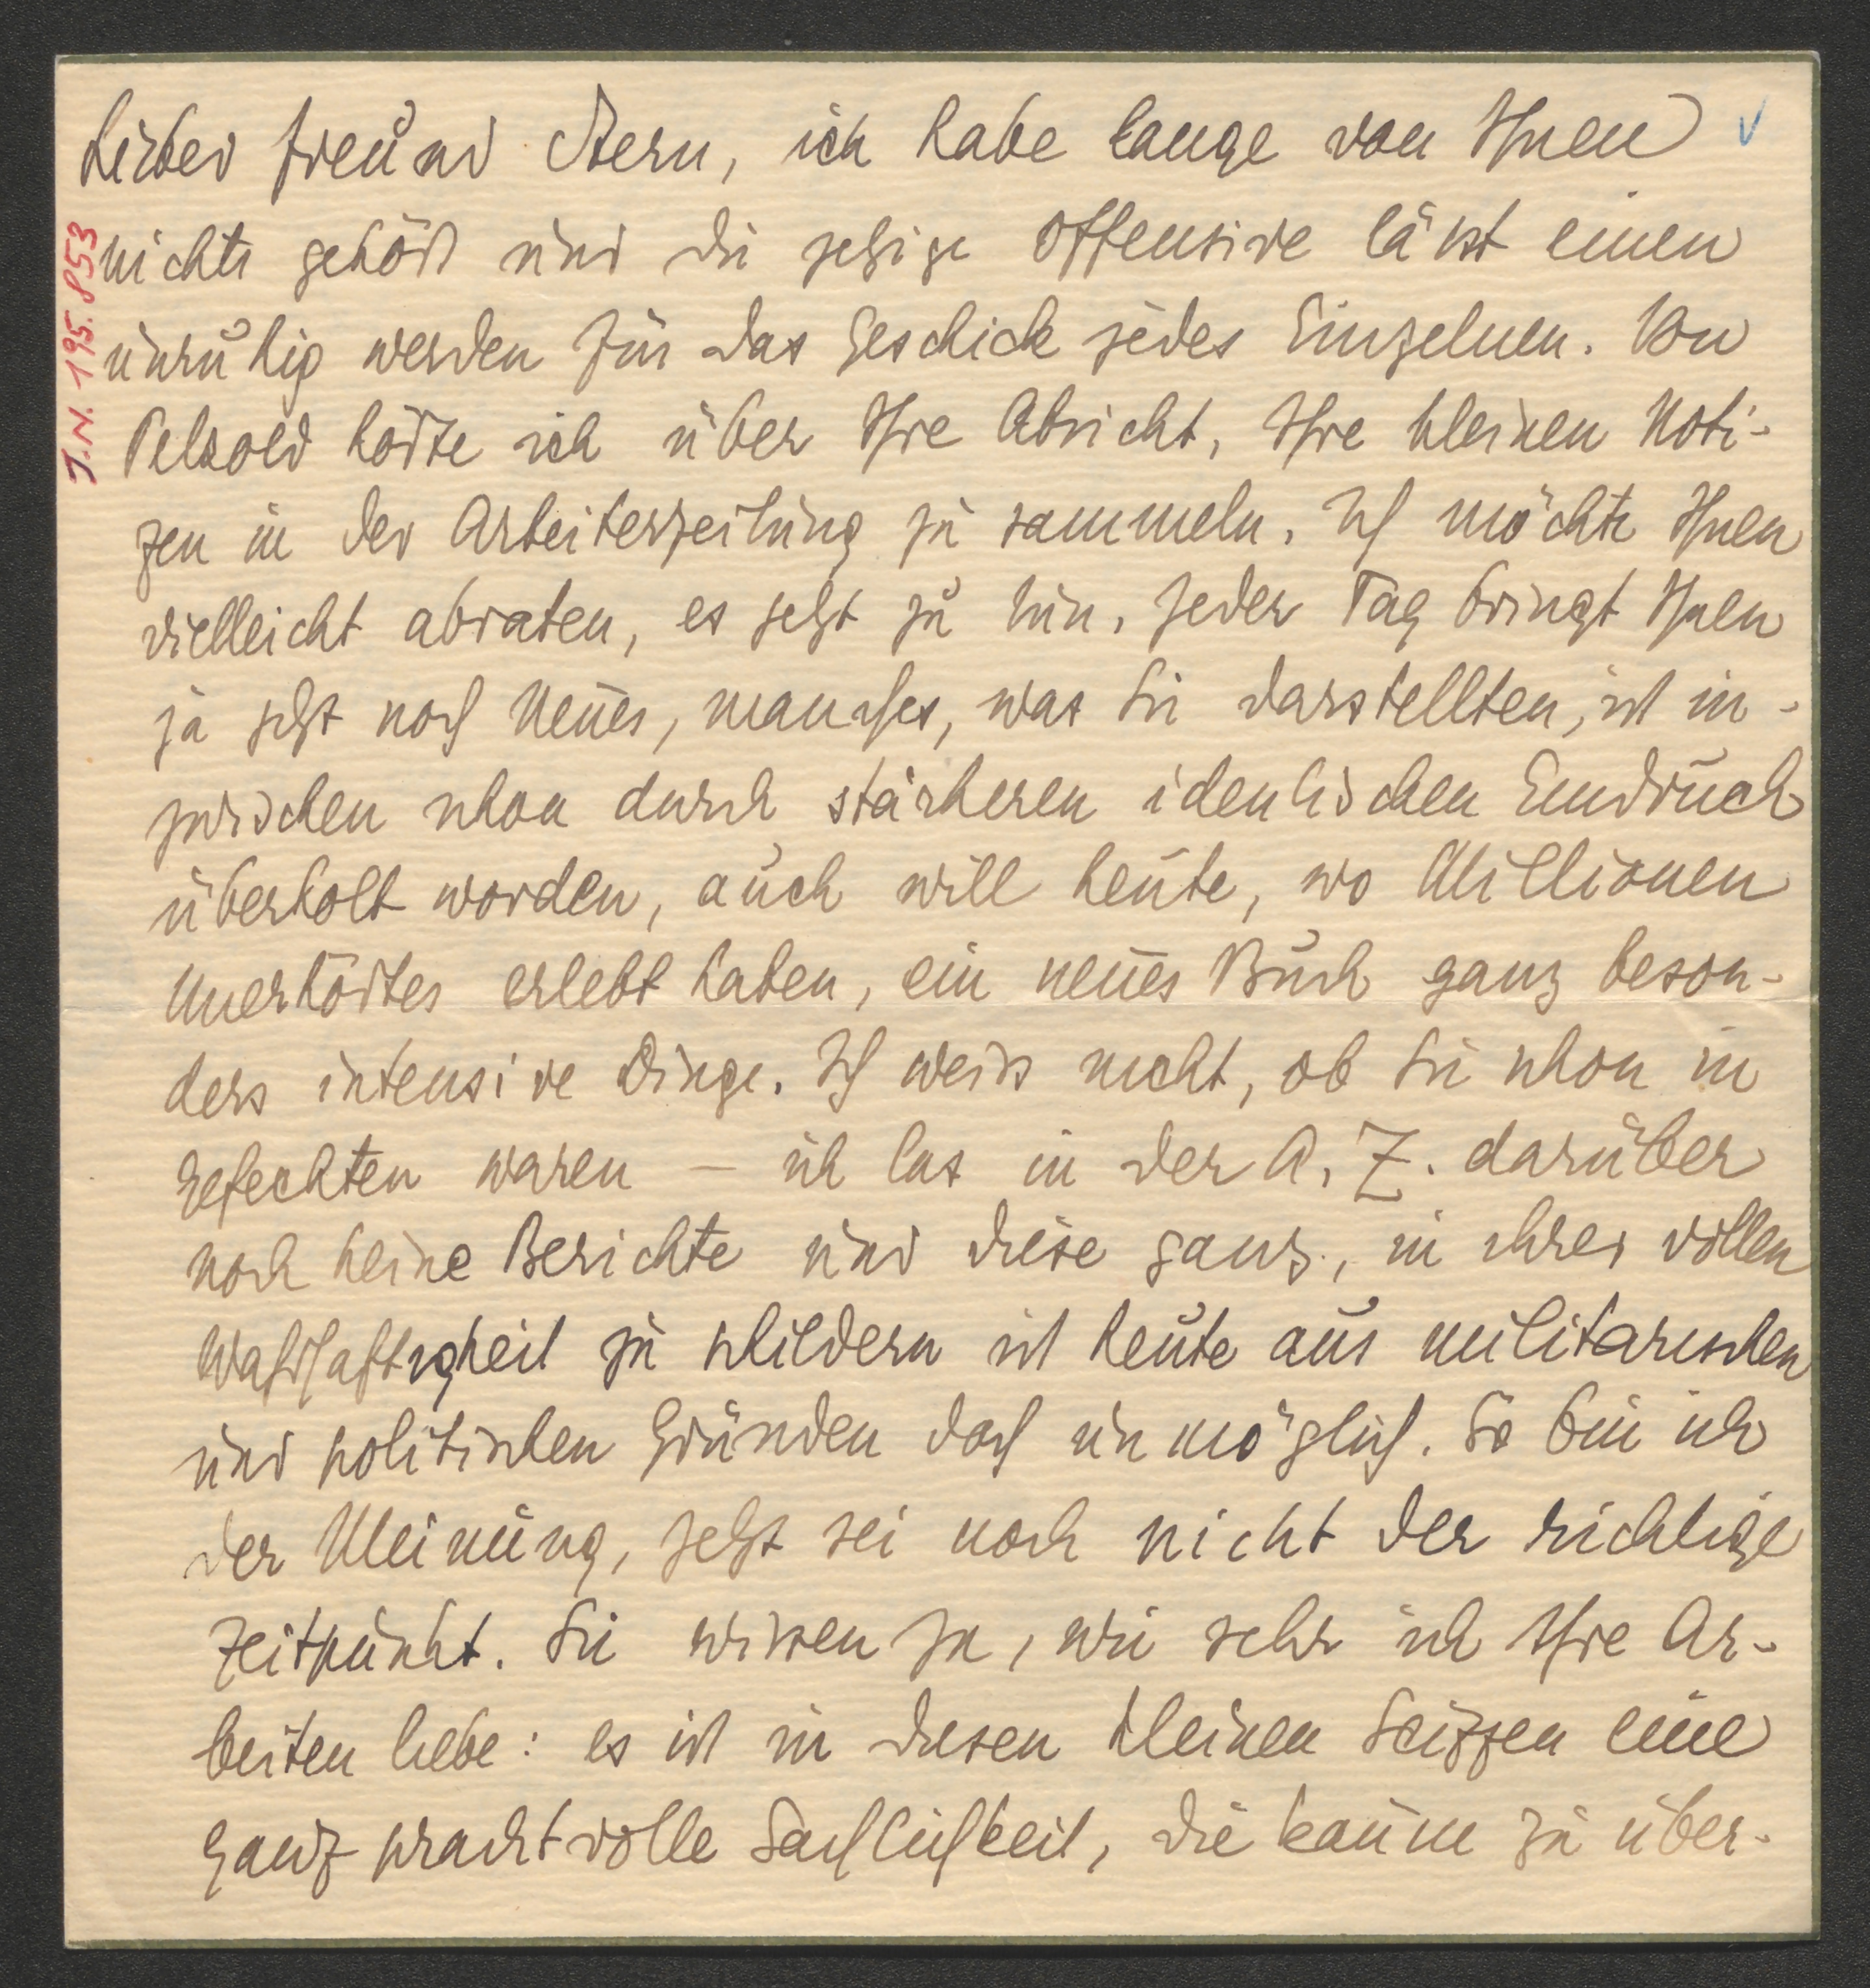 Lieber Freund Stern, ich habe lange von Ihnen
nichts gehört und die jetzige Offensive lässt einen
unruhig werden für das Geschick jedes Einzelnen. Von
Petzold hörte ich über Ihre Absicht, Ihre kleinen Noti-
zen in der Arbeiterzeitung zu sammeln. Ich möchte Ihnen
vielleicht abraten, es jetzt zu tun. Jeder Tag bringt Ihnen
ja jetzt noch Neues, manches, was Sie darstellten, ist in-
zwischen schon durch stärkeren identischen Eindruck
überholt worden, auch will heute, wo Millionen
Unerhörtes erlebt haben, ein neues Buch ganz beson-
ders intensive Dinge. Ich weiss nicht, ob Sie schon in
Gefechten waren – ich las in der A. Z. darüber
noch keine Berichte und diese ganz, in ihrer vollen
Wahrhaftigkeit zu schildern ist heute aus militärischen
und politischen Gründen doch unmöglich. So bin ich
der Meinung, jetzt sei noch nicht der richtige
Zeitpunkt. Sie wissen ja, wie sehr ich Ihre Ar-
beiten liebe: es ist in diesen kleinen Scizzen eine
ganz prachtvolle Sachlichkeit, die kaum zu über-
J.N. 195.853